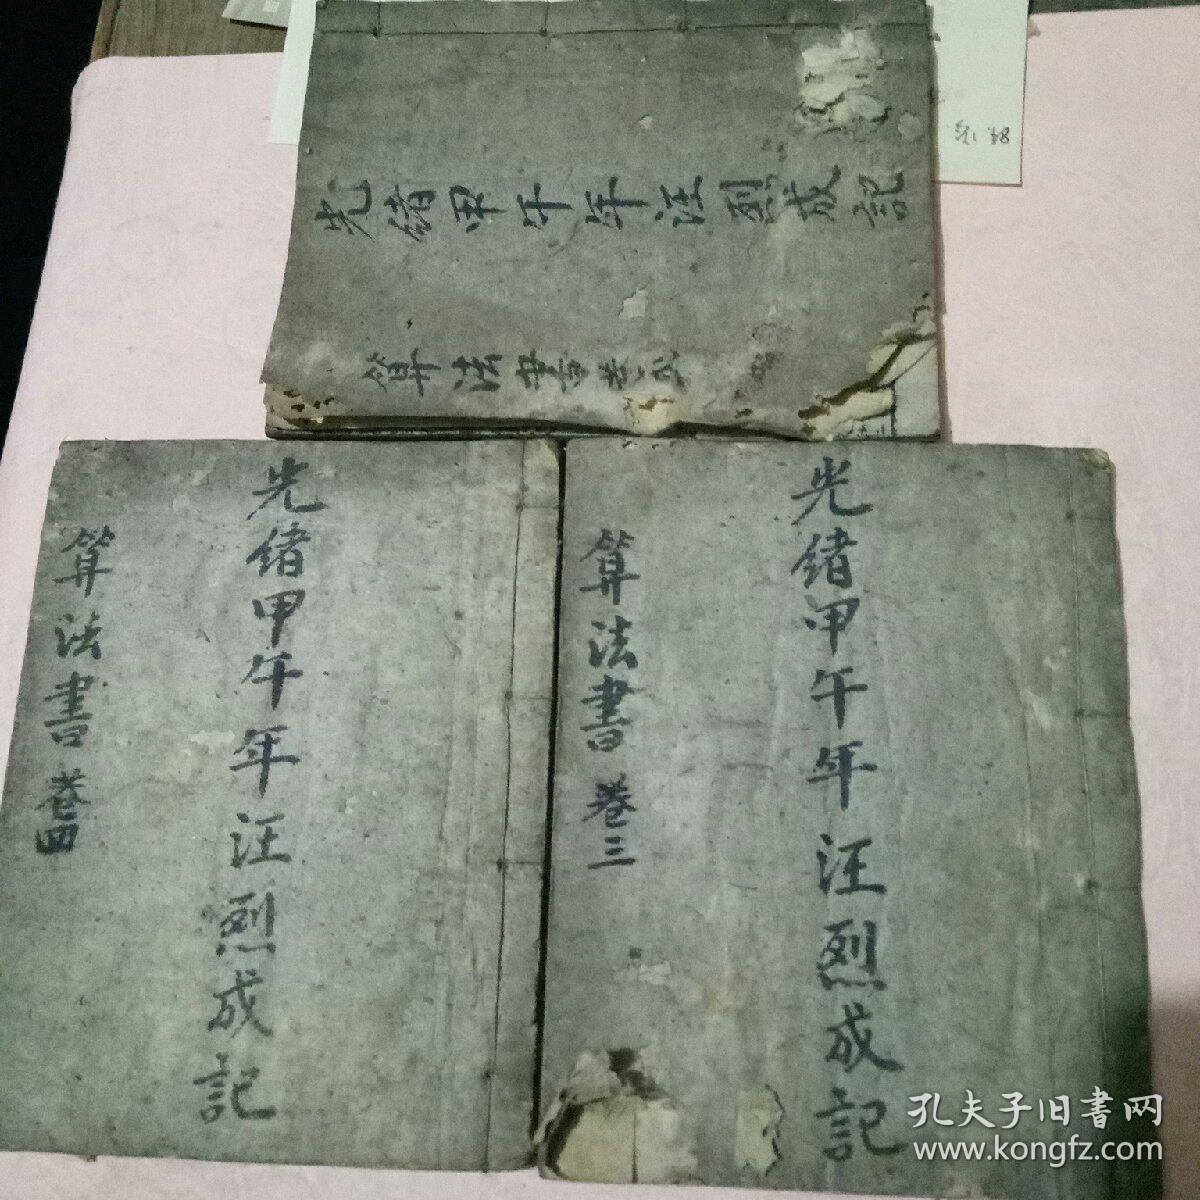 光緒甲午年汪烈成記
算法書卷
光緒甲午年汪烈成記
算法書 卷三
光緒甲午年汪烈成記
算法書 卷四
孔夫子旧書网
www.kongfz.com